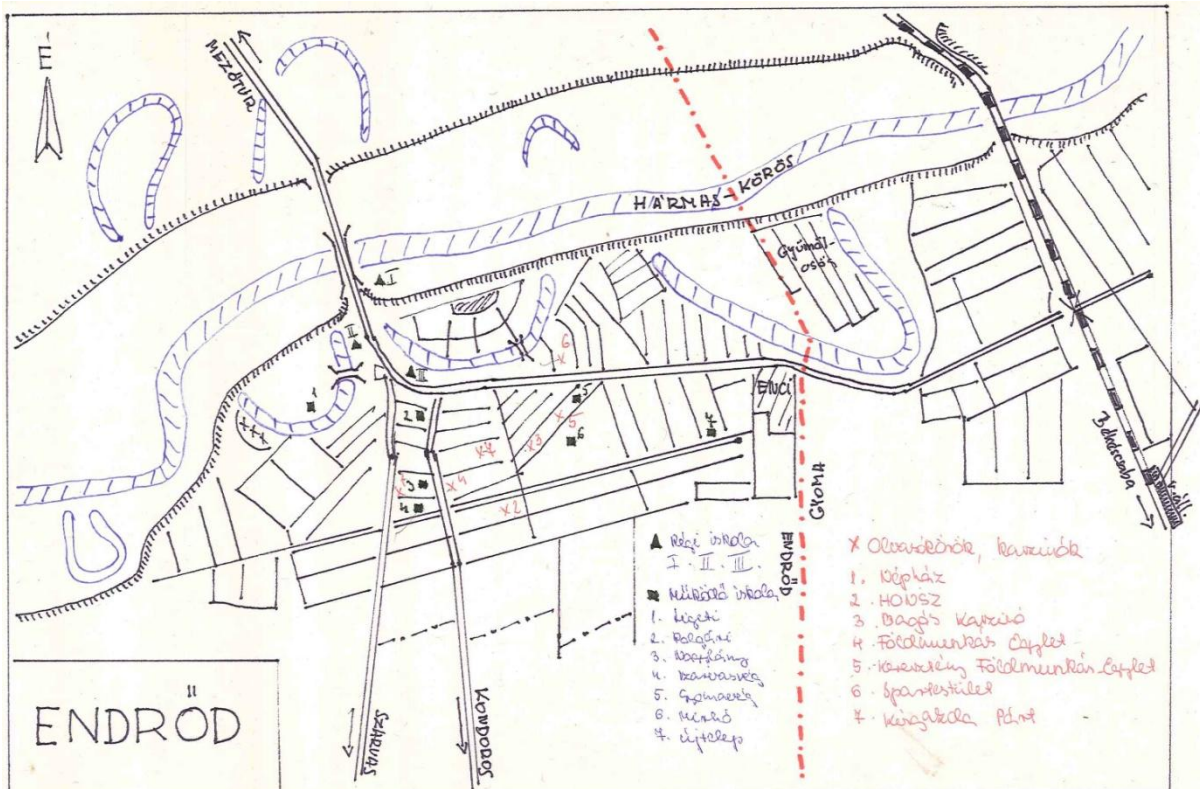 É
MEZŐTÚR
HÁRMAS-KÖRÖS
Gyümöl-
csös
I
II
III
6
1
2
5
5
6
7
3
7
4
3
4
2
ENCI
Békéscsaba
GYOMA
ENDRŐD
SZARVAS
KONDOROS
ENDRŐD
▲ Régi iskola
I. II. III.
■ Működő iskola
1. Ligeti
2. Polgári
3. Nagylány
4. Szarvasvég
5. Gyomavég
6. Mirhó
7. Újtelep
X Olvasókörök, Kaszinók
1. Népház
2. HONSZ
3. Kaszinó
4. Földmunkás Egylet
5. Keresztény Földmunkás Egylet
6. Ipartestület
7. Kisgazda Párt